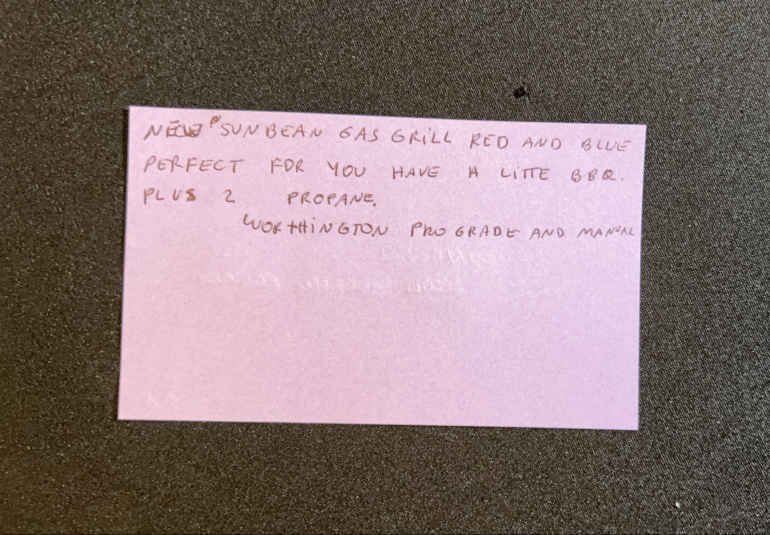 NEW "SUNBEAN GAS GRILL RED AND BLUE
PERFECT FOR YOU HAVE A LITTE BBQ.
PLUS 2 PROPANE.
WORTHINGTON PRO GRADE AND MANUAL